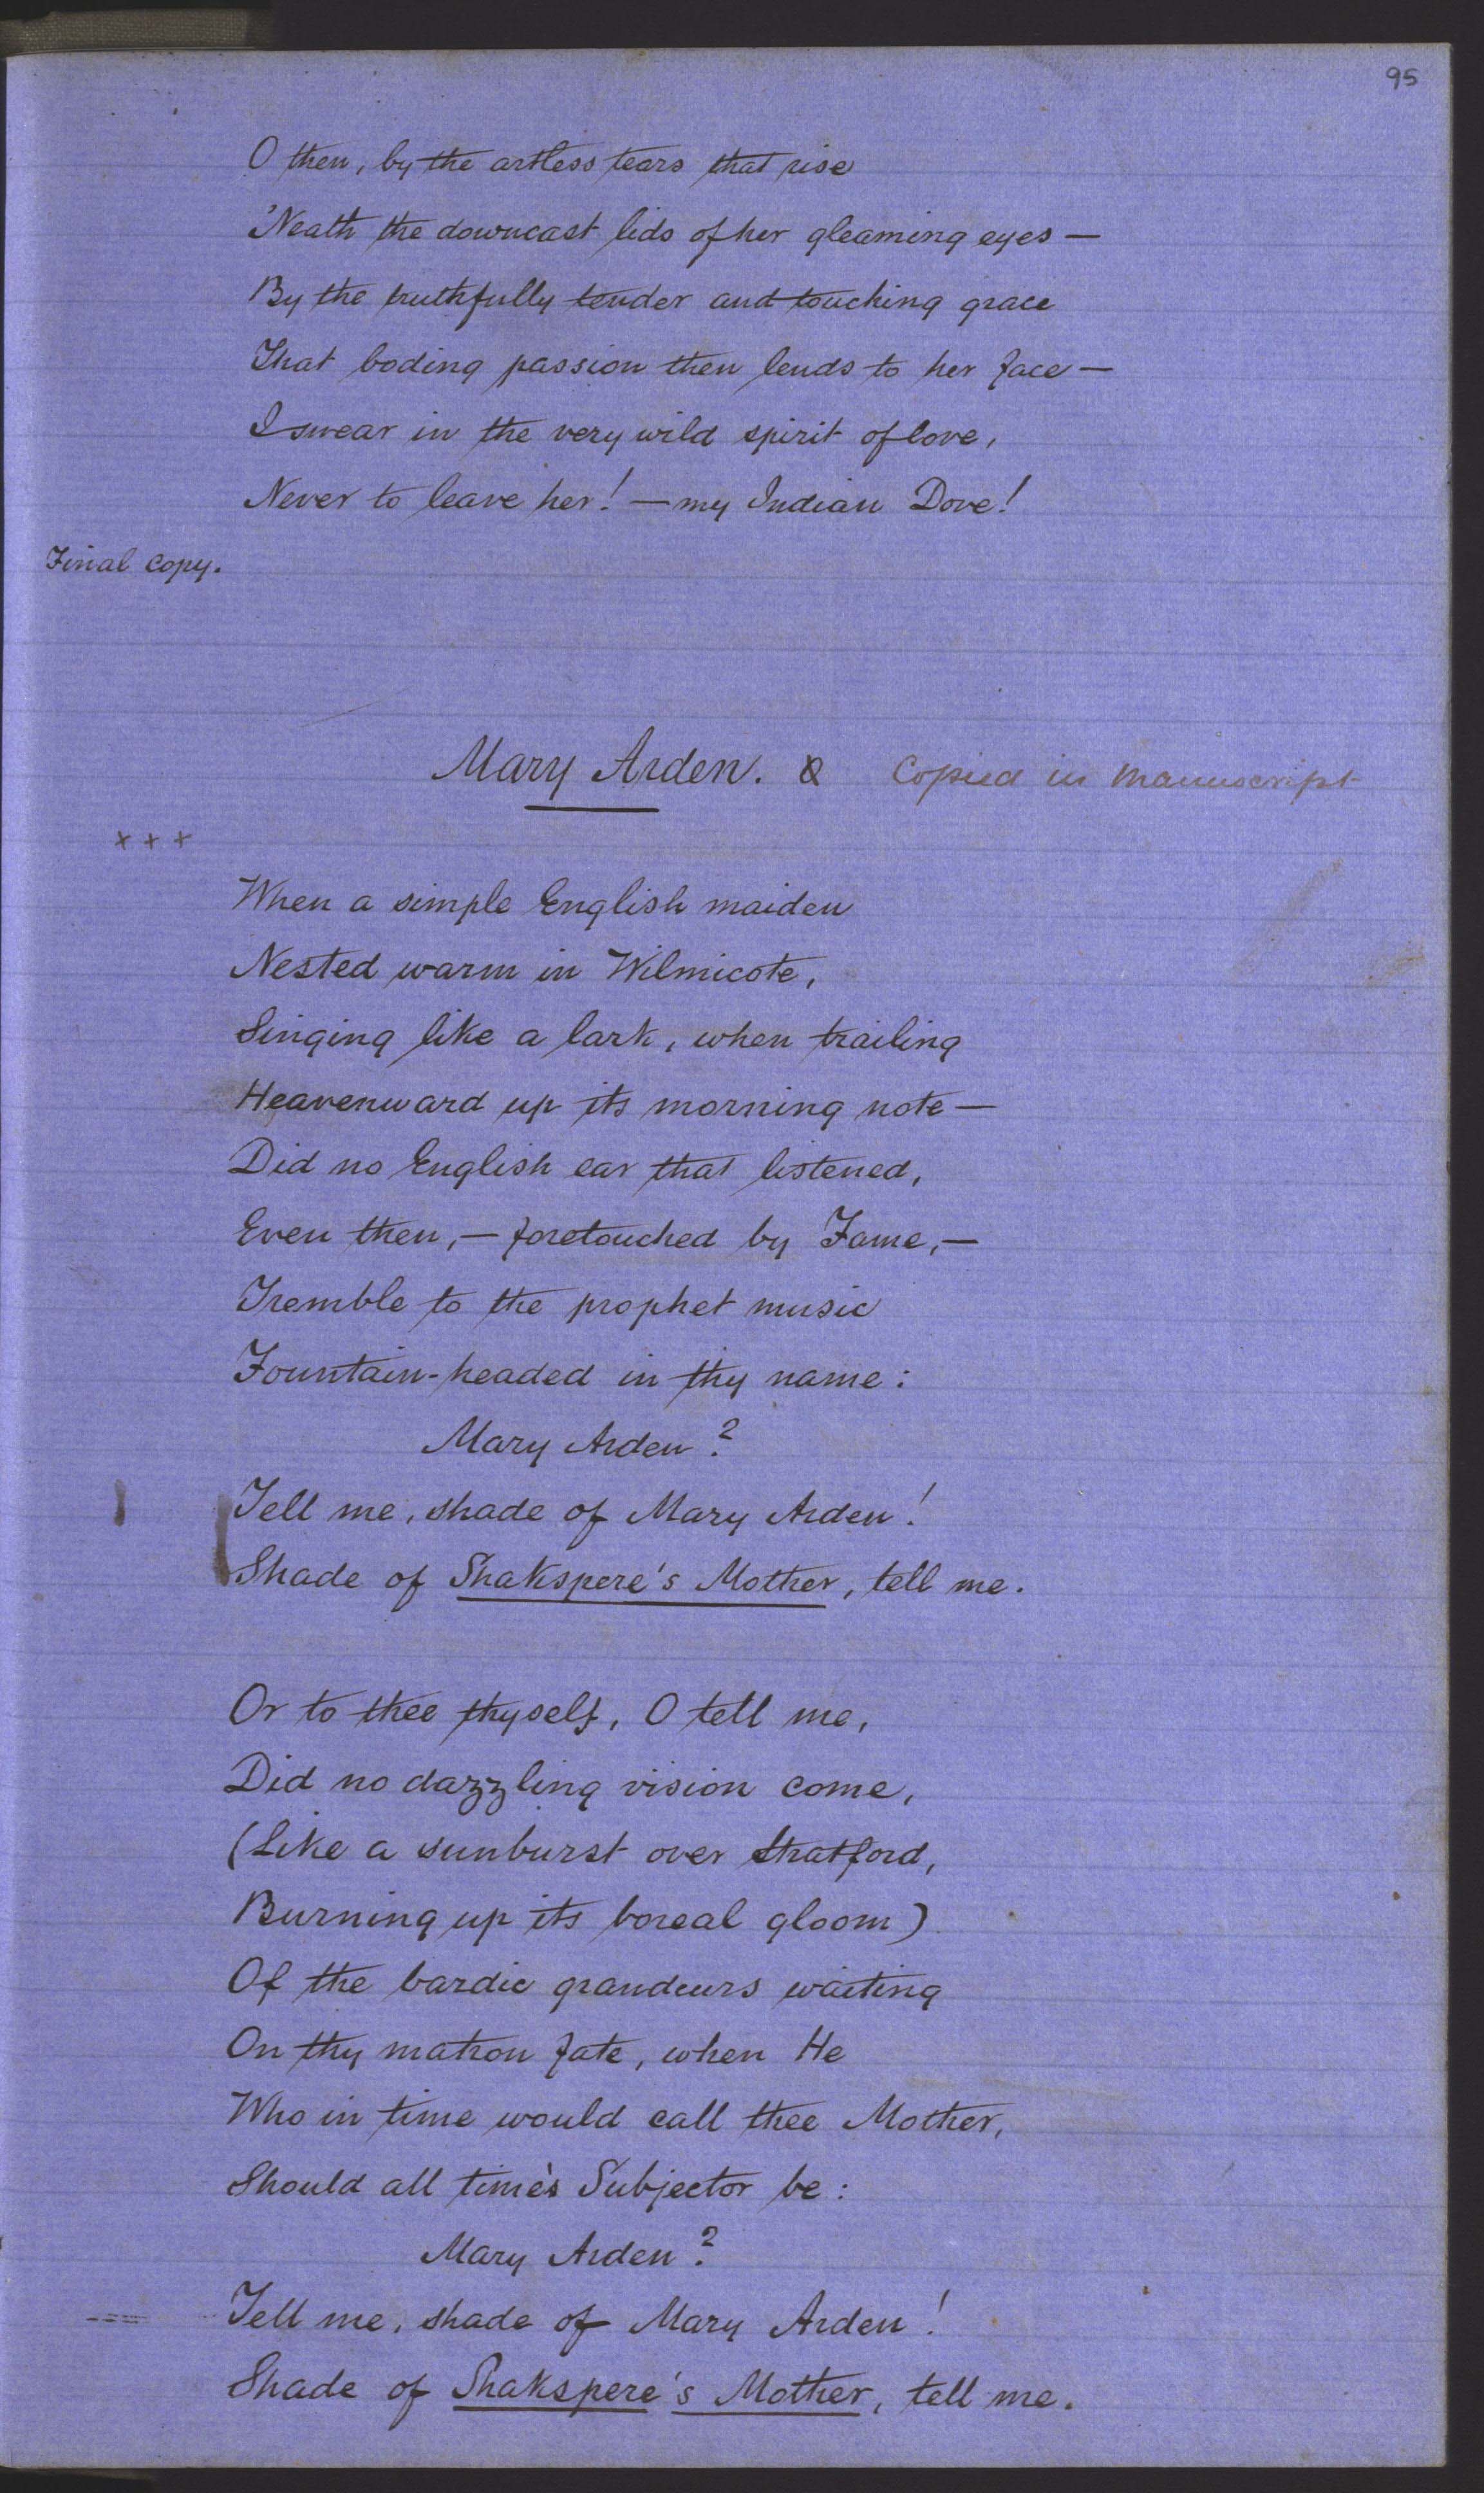 95
O then, by the artless tears that rise
'Neath the downcast lids of her gleaming eyes —
By the truthfully tender and touching grace
That boding passion then lends to her face —
I swear in the very wild spirit of love,
Never to leave her! — my Indian Dove!
Final copy.
Mary Arden. Copied in Manuscript
+ + +
When a simple English maiden
Nested warm in Wilmicote,
Singing like a lark, when trailing
Heavenward up its morning note —
Did no English ear that listened,
Even then, — foretouched by Fame, —
Tremble to the prophet music
Fountain-headed in thy name:
Mary Arden?
Tell me, shade of Mary Arden!
Shade of Shakspere's Mother, tell me.
Or to thee thyself, O tell me,
Did no dazzling vision come,
(Like a sunburst over Stratford,
Burning up its boreal gloom)
Of the bardic grandeurs waiting
On thy matron fate, when He
Who in time would call thee Mother,
Should all time's Subjector be:
Mary Arden?
Tell me, shade of Mary Arden!
Shade of Shakspere's Mother, tell me.